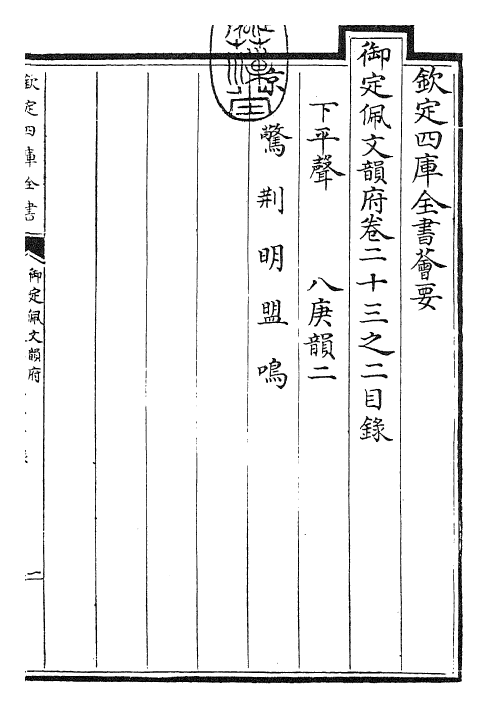 欽定四庫全書薈要
御定佩文韻府卷二十三之二目錄
下平聲 八庚韻二
京 驚 荆 明 盟 鳴
欽定四庫全書
御定佩文韻府